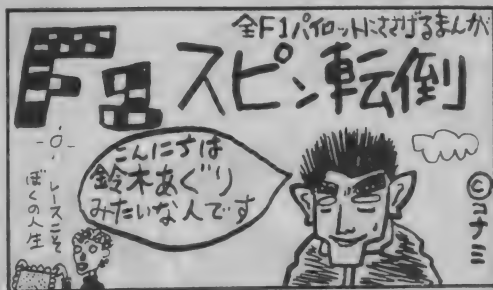 全F1パイロットにささげるまんが
F1スピン転倒
こんにちは
鈴木あぐり
みたいな人です
レースこそ
ぼくの人生
©コナミ